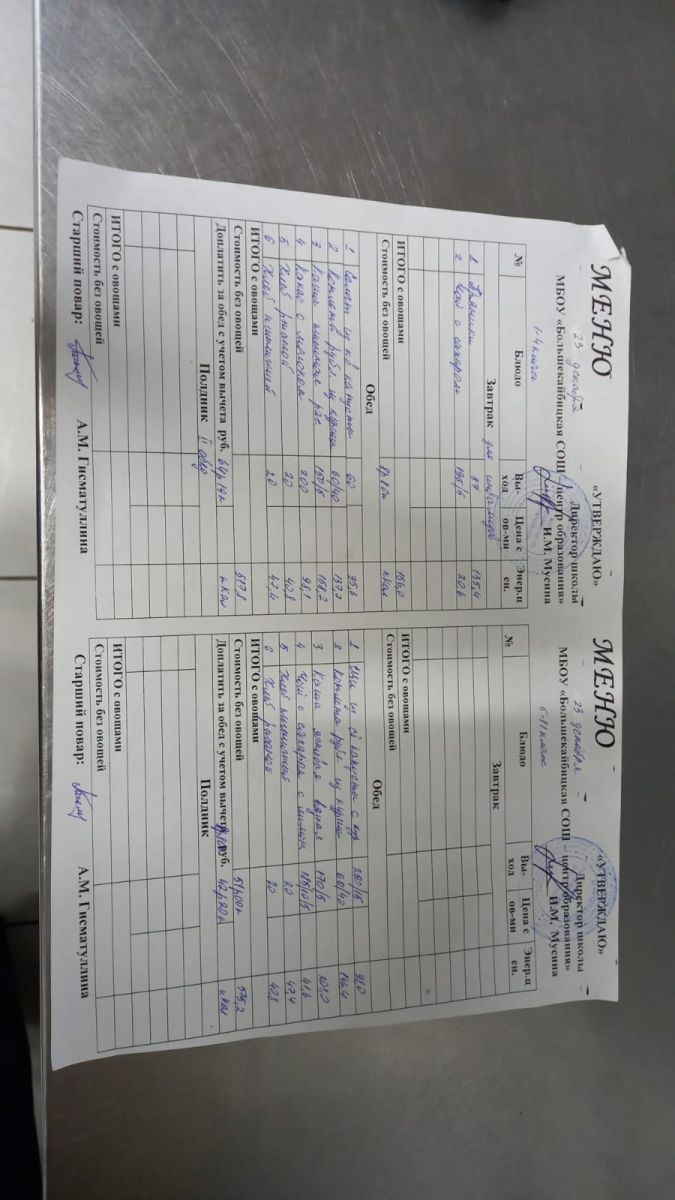 МЕНЮ
«УТВЕРЖДАЮ»
Директор школы
23 декабря
МБОУ «Большекайбицкая СОШ – центр образования»
И.М. Мусина
1-4 класс
№ Блюдо Вы-ход Цена с ов-ми Энер.ц ен.
Завтрак для
1 Пряники 37 135,4
2 Чай с сахаром 195/5 20,6
ИТОГО с овощами 156,0
Стоимость без овощей ккал
Обед
1 Салат из капусты 60 35,6
2 Котлета руб. из курицы 60/40 137,7
3 Каша 150/5 158,2
4 Какао с молоком 200 98,1
5 Хлеб ржаной 20 40,8
6 Хлеб пшеничный 20 47,4
ИТОГО с овощами
Стоимость без овощей 517,8
Доплатить за обед с учетом вычета руб. 64р 14к ккал
Полдник
ИТОГО с овощами
Стоимость без овощей
Старший повар: А.М. Гисматуллина
МЕНЮ
«УТВЕРЖДАЮ»
Директор школы
23 декабря
МБОУ «Большекайбицкая СОШ – центр образования»
И.М. Мусина
5-11 класс
№ Блюдо Вы-ход Цена с ов-ми Энер.ц ен.
Завтрак
ИТОГО с овощами
Стоимость без овощей
Обед
1 Щи из св капусты с кур 250/15
2 Котлета руб. из курицы 60/40
3 Каша вязкая 170/5
4 Чай с сахаром с лимон 41,6
5 Хлеб пшеничный 20 47,4
6 Хлеб ржаной 20 40,8
ИТОГО с овощами
Стоимость без овощей 575,2
Доплатить за обед с учетом вычета руб. ккал
Полдник
ИТОГО с овощами
Стоимость без овощей
Старший повар: А.М. Гисматуллина